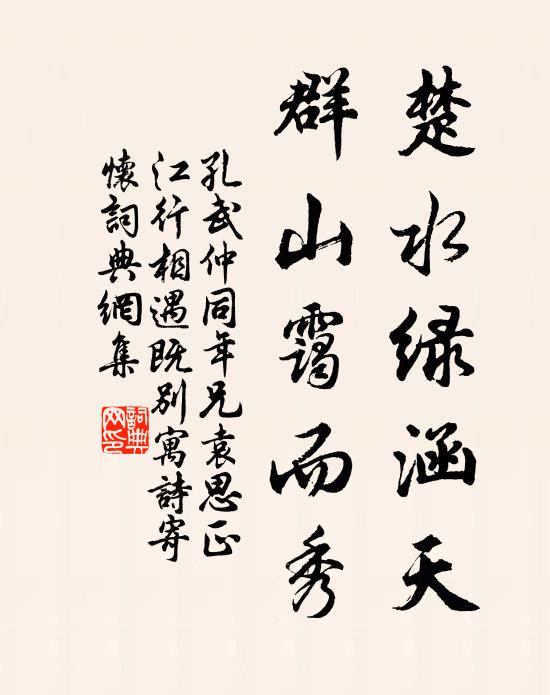 楚水绿涵天
群山霭而秀
孔武仲同年兄袁思正
江行相遇既别寓詩寄
懷詞典網集
詞典
网印